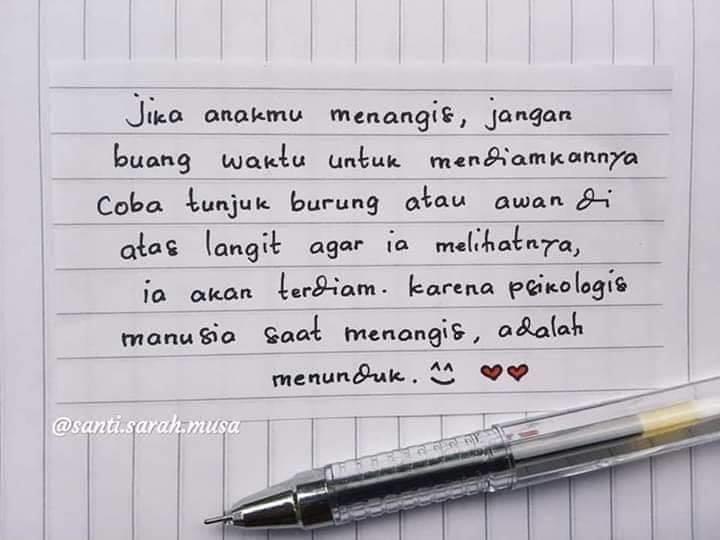 Jika anakmu menangis, jangan
buang waktu untuk mendiamkannya
Coba tunjuk burung atau awan di
atas langit agar ia melihatnya,
ia akan terdiam. karena psikologis
manusia saat menangis, adalah
menunduk.
@santi.sarah.musa